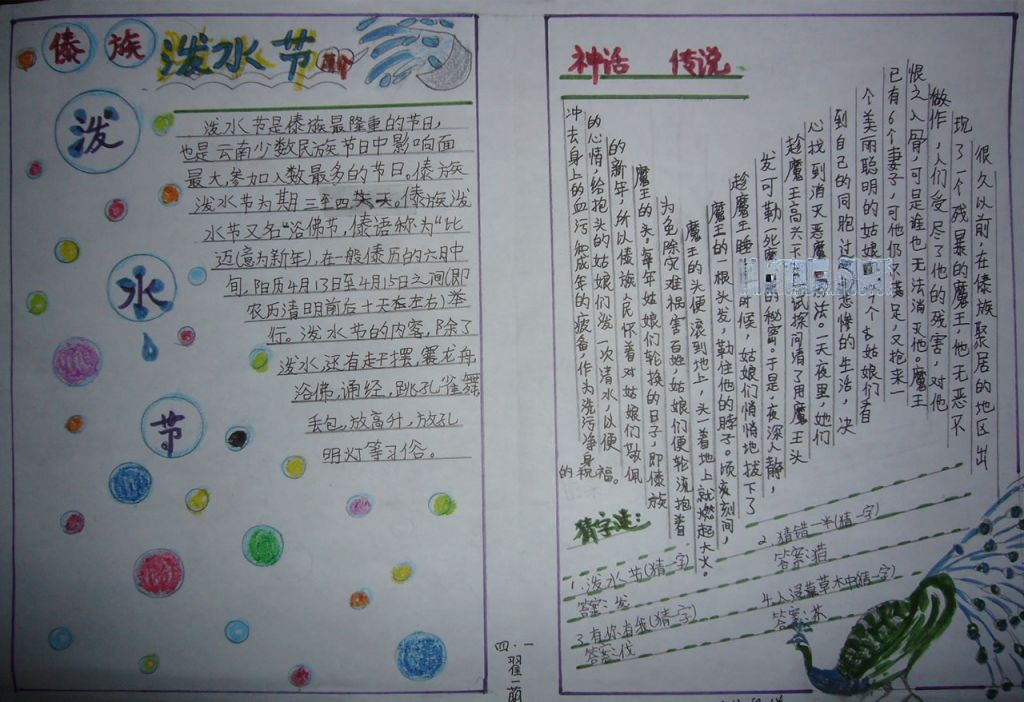 傣族 泼水节
泼水节
泼水节是傣族最隆重的节日,
也是云南少数民族节日中影响面
最大,参加人数最多的节日。傣族
泼水节为期三至四天。傣族泼
水节又名“浴佛节,傣语称为“比
迈(意为新年),在一般傣历的六月中
旬,阳历4月13日至4月15日之间(即
农历清明前后十天左右)举
行。泼水节的内容,除了
泼水还有赶摆,赛龙舟
浴佛,诵经,跳孔雀舞
丢包,放高升,放孔
明灯等习俗。
神话 传说
很久以前,在傣族聚居的地区出
现了一个残暴的魔王,他无恶不
做作,人们受尽了他的残害,对他
恨之入骨,可是谁也无法消灭他。魔王
已有6个妻子,可他仍不满足,又抢来一
个美丽聪明的姑娘。
到自己的同胞过悲惨的生活,决
心找到消灭恶魔法。一天夜里,她们
趁魔王高兴试探问清了用魔王头
发可勒死的秘密。于是,夜深人静,
趁魔王睡时候,姑娘们悄悄地拔下了
魔王的一根头发,勒住他的脖子。顷刻间,
魔王的头便滚到地上,头一着地上就燃起大火。
为免除灾难祸害百姓,姑娘们便轮流抱着
魔王的头,每年姑娘们轮换的日子,即傣族
的新年,所以傣族人民怀着对姑娘们敬佩
的心情,给抱头的姑娘们泼一次清水,以便
冲去身上的血污和成年的疲备,作为洗污净身
的祝福。
猜字迷:
1.泼水节(猜一字)
答案:发
2.猜错一半(猜一字)
答案:猎
3.有你有我(猜一字)
答案:伐
4.人浸草木中(猜一字)
答案:茶
四·一
翟一萌